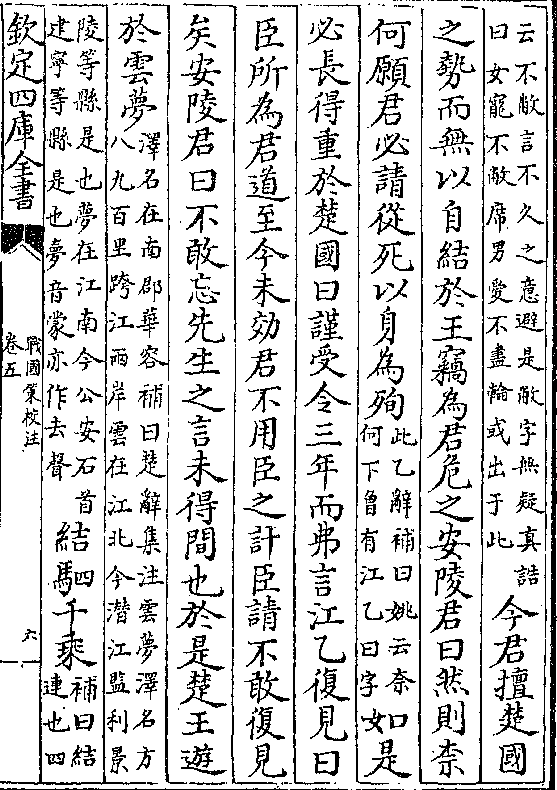 云不敝言不久之意避是敝字無疑真誥
曰女寵不敝席男愛不盡輪或出于此
今君擅楚國
之勢而無以自結於王竊為君危之安陵君曰然則柰
何願君必請從死以身為殉
此乙辭補曰姚云奈
何下曾有江乙曰字
如是
必長得重於楚國曰謹受令三年而弗言江乙復見曰
臣所為君道至今未効君不用臣之計臣請不敢復見
矣安陵君曰不敢忘先生之言未得間也於是楚王遊
於雲夢
澤名在南郡華容補曰楚辭集注雲夢澤名方
八九百里跨江兩岸雲在江北今潛江監利景
陵等縣是也夢在江南今公安石首
建寧等縣是也夢音蒙亦作去聲
結駟千乘
補曰結
連也四
欽定四庫全書
戰國策校注
卷五
六